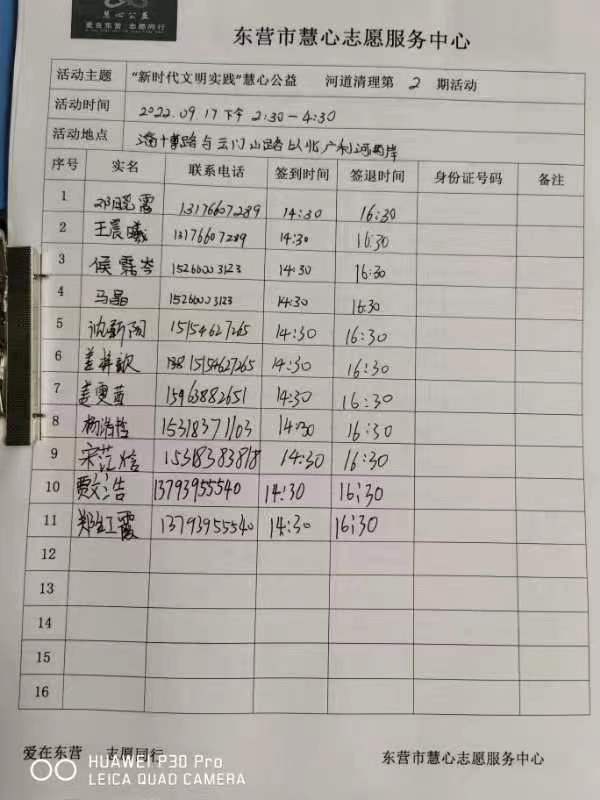 慧心公益
爱在东营 志愿同行
东营市慧心志愿服务中心
活动主题 “新时代文明实践”慧心公益 河道清理第 2 期活动
活动时间 2022.09.17 下午 2:30-4:30
活动地点 路与云门山路以北广利河西岸
序号 实名 联系电话 签到时间 签退时间 身份证号码 备注
1 邓晓雷 13176607289 14:30 16:30
2 王晨曦 13176607289 14:30 16:30
3 侯霈岑 15266003123 14:30 16:30
4 马晶 15266003123 14:30 16:30
5 15154627265 14:30 16:30
6 15154627265 14:30 16:30
7 姜雯蓝 15963882651 14:30 16:30
8 杨浩哲 15318371103 14:30 16:30
9 宋范焓 15318383818 14:30 16:30
10 贾文浩 13793955540 14:30 16:30
11 郑红霞 13793955540 14:30 16:30
12
13
14
15
16
爱在东营 志愿同行 东营市慧心志愿服务中心
HUAWEI P30 Pro
LEICA QUAD CAMERA